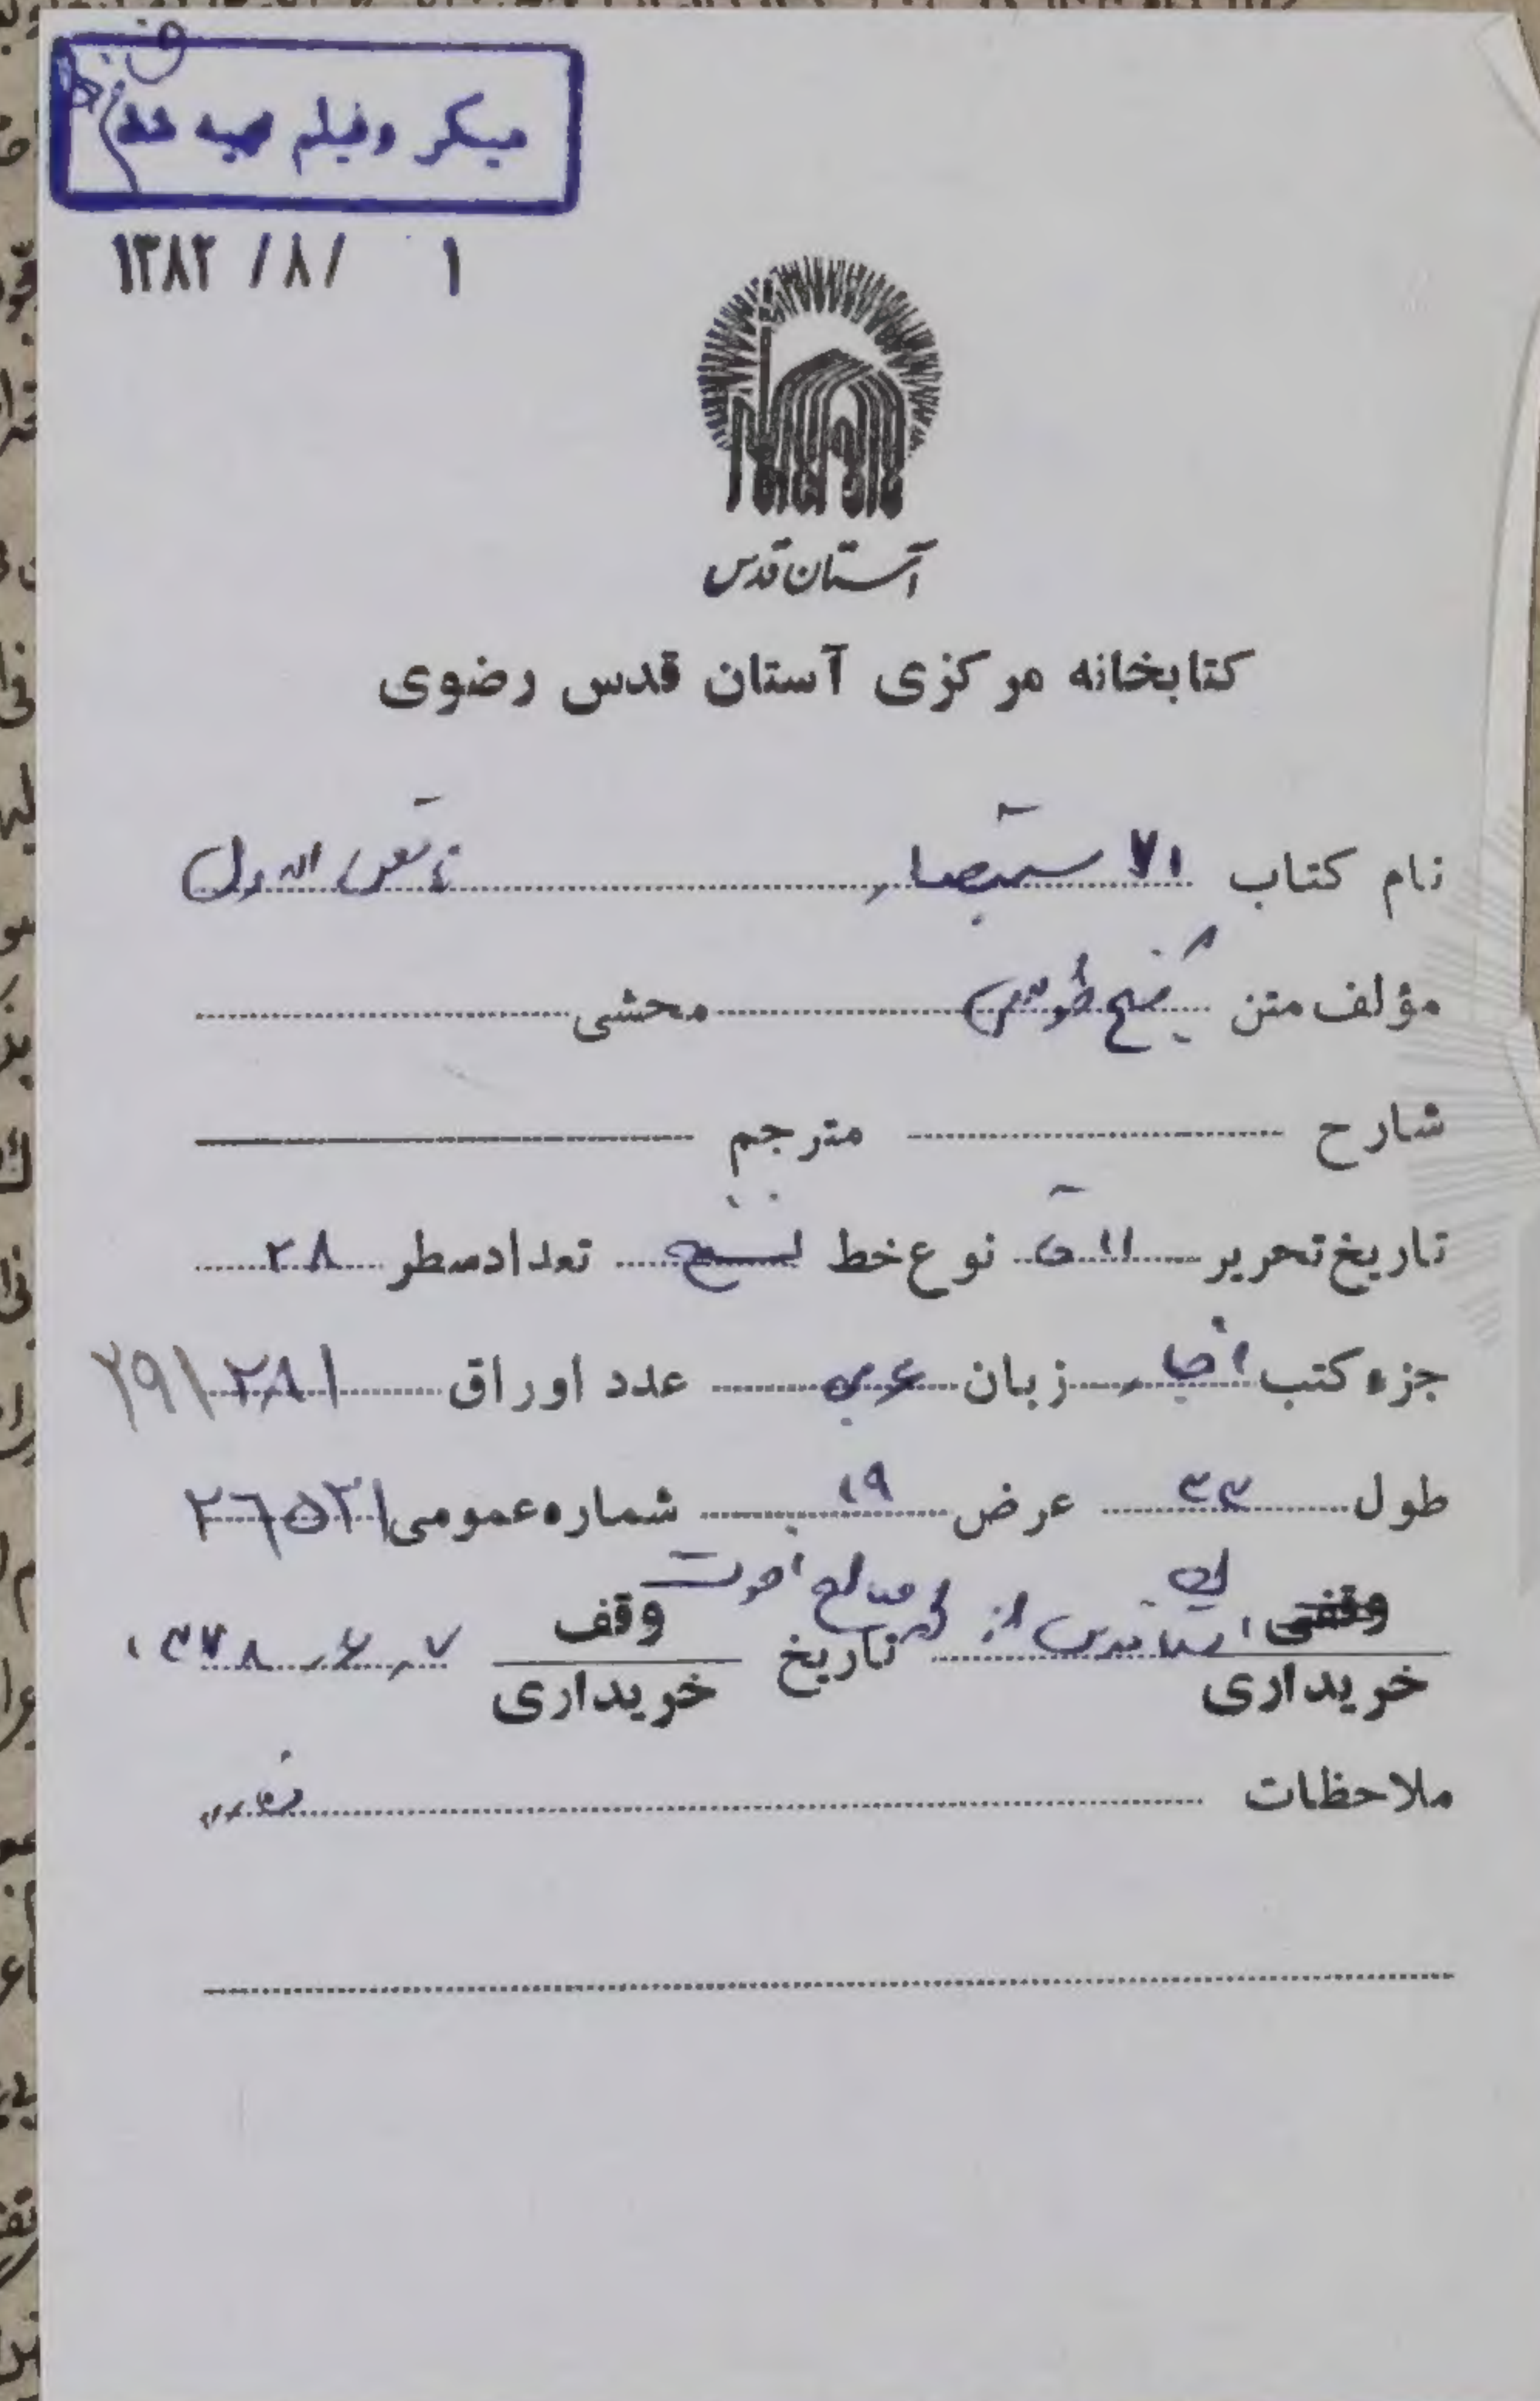 میکروفیلم تهیه شد
۱۳۸۲ /۸/ ۱
آستان قدس
کتابخانه مرکزی آستان قدس رضوی
نام کتاب الاستبصار ناقص الاول
مؤلف متن شیخ طوسی محشی
شارح مترجم
تاریخ تحریر نوع خط نسخ تعداد سطر ۲۸
جزء کتب اخبار زبان عربی عدد اوراق ۲۸۱ ۲۹۱
طول ۳۳ عرض ۱۹ شماره عمومی ۲۶۵۳۱
وقفی تاریخ وقف ۷ ۱۳۷۸
خریداری خریداری
ملاحظات